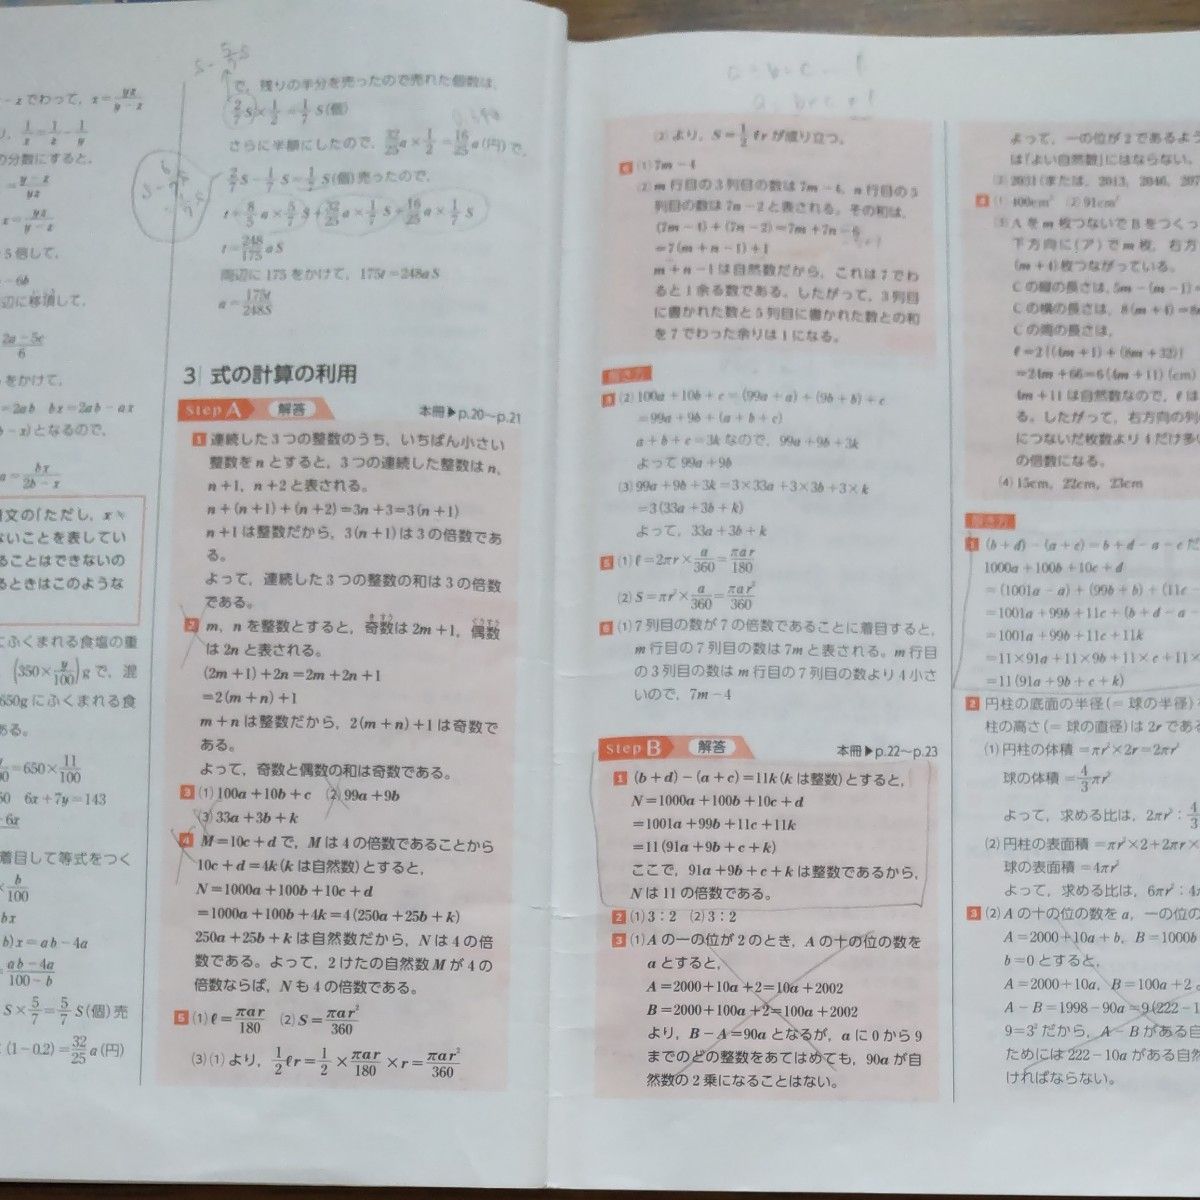 －xでわって，x＝yz/y－z
1/x＝1/z－1/y
の分数にすると，
＝y－z/yz
x＝yz/y－z
5倍して，
－6b
辺に移項して，
2a－5c/6
をかけて，
＝2ab　bx＝2ab－ax
b－x)となるので，
a＝bx/2b－x
文の「ただし，x≒
ないことを表してい
ることはできないの
るときはこのような
にふくまれる食塩の重
(350×y/100)gで，混
650gにふくまれる食
ある。
＝650×11/100
6x＋7y＝143
－6x
着目して等式をつく
×b/100
bx
b)x＝ab－4a
＝ab－4a/100－b
S×5/7＝5/7 S(個)売
(1－0.2)＝32/25 a(円)
S－5/7S
で，残りの半分を売ったので売れた個数は，
2/7 S×1/2＝1/7 S(個)
さらに半額にしたので，32/25 a×1/2＝16/25 a(円)で，
2/7 S－1/7 S＝1/7 S(個)売ったので，
t＝8/5 a×5/7 S＋32/25 a×1/7 S＋16/25 a×1/7 S
t＝248/175 aS
両辺に175をかけて，175t＝248aS
a＝175t/248S
3 式の計算の利用
Step A 解答 本冊▶p.20～p.21
1 連続した3つの整数のうち，いちばん小さい
整数をnとすると，3つの連続した整数はn，
n＋1，n＋2と表される。
n＋(n＋1)＋(n＋2)＝3n＋3＝3(n＋1)
n＋1は整数だから，3(n＋1)は3の倍数であ
る。
よって，連続した3つの整数の和は3の倍数
である。
2 m，nを整数とすると，奇数は2m＋1，偶数
は2nと表される。
(2m＋1)＋2n＝2m＋2n＋1
＝2(m＋n)＋1
m＋nは整数だから，2(m＋n)＋1は奇数で
ある。
よって，奇数と偶数の和は奇数である。
3 (1)100a＋10b＋c　(2)99a＋9b
(3)33a＋3b＋k
4 M＝10c＋dで，Mは4の倍数であることから
10c＋d＝4k(kは自然数)とすると，
N＝1000a＋100b＋10c＋d
＝1000a＋100b＋4k＝4(250a＋25b＋k)
250a＋25b＋kは自然数だから，Nは4の倍
数である。よって，2けたの自然数Mが4の
倍数ならば，Nも4の倍数である。
5 (1)ℓ＝πar/180　(2)S＝πar²/360
(3)(1)より，1/2 ℓr＝1/2×πar/180×r＝πar²/360
(2)より，S＝1/2 ℓrが成り立つ。
6 (1)7m－4
(2)m行目の3列目の数は7m－4，n行目の5
列目の数は7n－2と表される。その和は，
(7m－4)＋(7n－2)＝7m＋7n－6
＝7(m＋n－1)＋1
m＋n－1は自然数だから，これは7でわ
ると1余る数である。したがって，3列目
に書かれた数と5列目に書かれた数との和
を7でわった余りは1になる。
解き方
3 (2)100a＋10b＋c＝(99a＋a)＋(9b＋b)＋c
＝99a＋9b＋(a＋b＋c)
a＋b＋c＝3kなので，99a＋9b＋3k
よって99a＋9b
(3)99a＋9b＋3k＝3×33a＋3×3b＋3×k
＝3(33a＋3b＋k)
よって，33a＋3b＋k
5 (1)ℓ＝2πr×a/360＝πar/180
(2)S＝πr²×a/360＝πar²/360
6 (1)7列目の数が7の倍数であることに着目すると，
m行目の7列目の数は7mと表される。m行目
の3列目の数はm行目の7列目の数より4小さ
いので，7m－4
Step B 解答 本冊▶p.22～p.23
1 (b＋d)－(a＋c)＝11k(kは整数)とすると，
N＝1000a＋100b＋10c＋d
＝1001a＋99b＋11c＋11k
＝11(91a＋9b＋c＋k)
ここで，91a＋9b＋c＋kは整数であるから，
Nは11の倍数である。
2 (1)3：2　(2)3：2
3 (1)Aの一の位が2のとき，Aの十の位の数を
aとすると，
A＝2000＋10a＋2＝10a＋2002
B＝2000＋100a＋2＝100a＋2002
より，B－A＝90aとなるが，aに0から9
までのどの整数をあてはめても，90aが自
然数の2乗になることはない。
よって，一の位が2であるよ
は「よい自然数」にはならない。
(2)2031(または，2013，2046，207
4 (1)400cm²　(2)91cm²
(3)Aをm枚つないでBをつくっ
下方向に(ア)でm枚，右方
(m＋4)枚つながっている。
Cの縦の長さは，5m－(m－1)＝
Cの横の長さは，8(m＋4)＝8m
Cの周の長さは，
ℓ＝2{(4m＋1)＋(8m＋32)}
＝24m＋66＝6(4m＋11)(cm)
4m＋11は自然数なので，ℓは
る。したがって，右方向の列
につないだ枚数より4だけ多い
の倍数になる。
(4)15cm，22cm，23cm
解き方
1 (b＋d)－(a＋c)＝b＋d－a－cだ
1000a＋100b＋10c＋d
＝(1001a－a)＋(99b＋b)＋(11c－
＝1001a＋99b＋11c＋(b＋d－a－
＝1001a＋99b＋11c＋11k
＝11×91a＋11×9b＋11×c＋11×
＝11(91a＋9b＋c＋k)
2 円柱の底面の半径(＝球の半径)を
柱の高さ(＝球の直径)は2rである
(1)円柱の体積＝πr²×2r＝2πr³
球の体積＝4/3 πr³
よって，求める比は，2πr³：4/3
(2)円柱の表面積＝πr²×2＋2πr×
球の表面積＝4πr²
よって，求める比は，6πr²：4π
3 (2)Aの十の位の数をa，一の位の
A＝2000＋10a＋b，B＝1000b
b＝0とすると，
A＝2000＋10a，B＝100a＋2
A－B＝1998－90a＝9(222－1
9＝3²だから，A－Bがある自
ためには222－10aがある自然
ければならない。